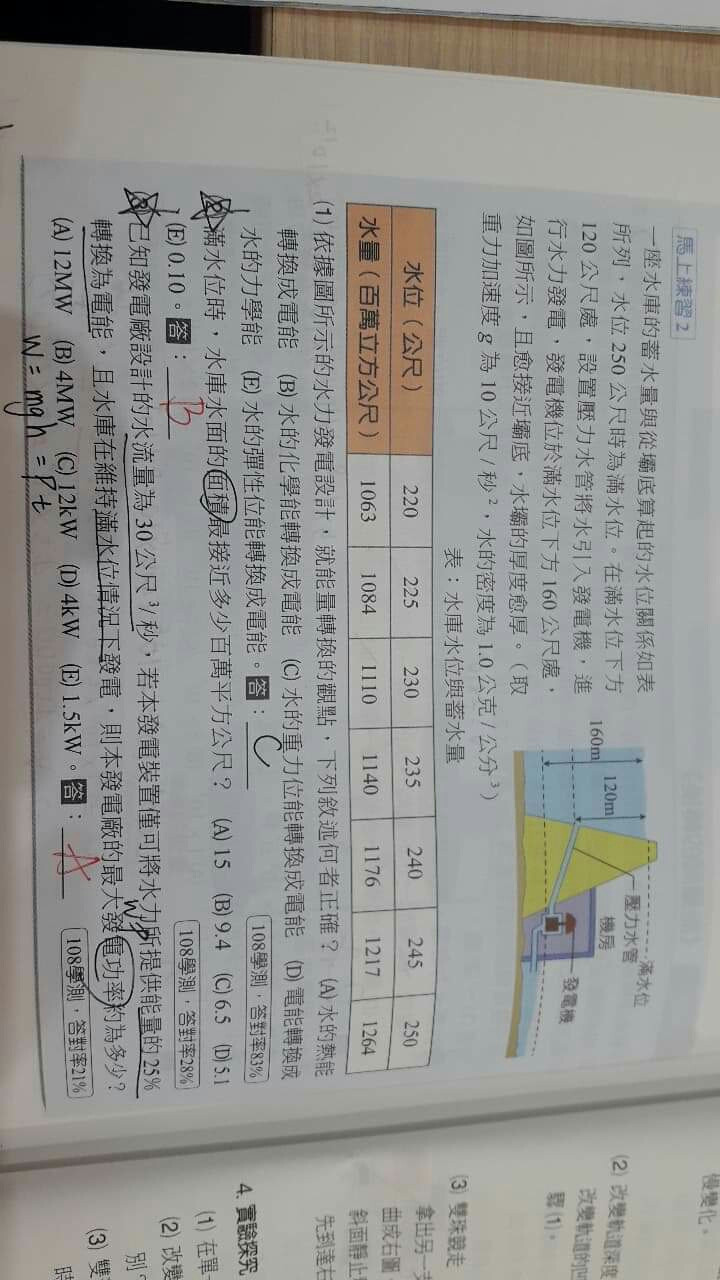 馬上練習 2
一座水庫的蓄水量與從壩底算起的水位關係如表
所列，水位 250 公尺時為滿水位。在滿水位下方
120 公尺處，設置壓力水管將水引入發電機，進
行水力發電，發電機位於滿水位下方 160 公尺處，
如圖所示，且愈接近壩底，水壩的厚度愈厚。（取
重力加速度 g 為 10 公尺 / 秒²，水的密度為 1.0 公克 / 公分³）
滿水位
壓力水管
機房
發電機
120m
160m
表：水庫水位與蓄水量
水位（公尺） 220 225 230 235 240 245 250
水量（百萬立方公尺） 1063 1084 1110 1140 1176 1217 1264
(1) 依據圖所示的水力發電設計，就能量轉換的觀點，下列敘述何者正確？ (A) 水的熱能
轉換成電能 (B) 水的化學能轉換成電能 (C) 水的重力位能轉換成電能 (D) 電能轉換成
水的力學能 (E) 水的彈性位能轉換成電能。答：C
108學測，答對率83%
(2) 滿水位時，水庫水面的面積最接近多少百萬平方公尺？ (A) 15 (B) 9.4 (C) 6.5 (D) 5.1
(E) 0.10。答：B
108學測，答對率28%
(3) 已知發電廠設計的水流量為 30 公尺³/秒，若本發電裝置僅可將水力所提供能量的 25%
轉換為電能，且水庫在維持滿水位情況下發電，則本發電廠的最大發電功率約為多少？
(A) 12MW (B) 4MW (C) 12kW (D) 4kW (E) 1.5kW。答：A
108學測，答對率21%
W = mgh = pt
慢變化。
(2) 改變軌道深度
改變軌道的凹
驟(1)。
(3) 雙珠競走
拿出另一
曲成右圖
斜面靜止
先到達右
4. 實驗探究
(1) 在單
(2) 改變
別？
(3) 雙
時